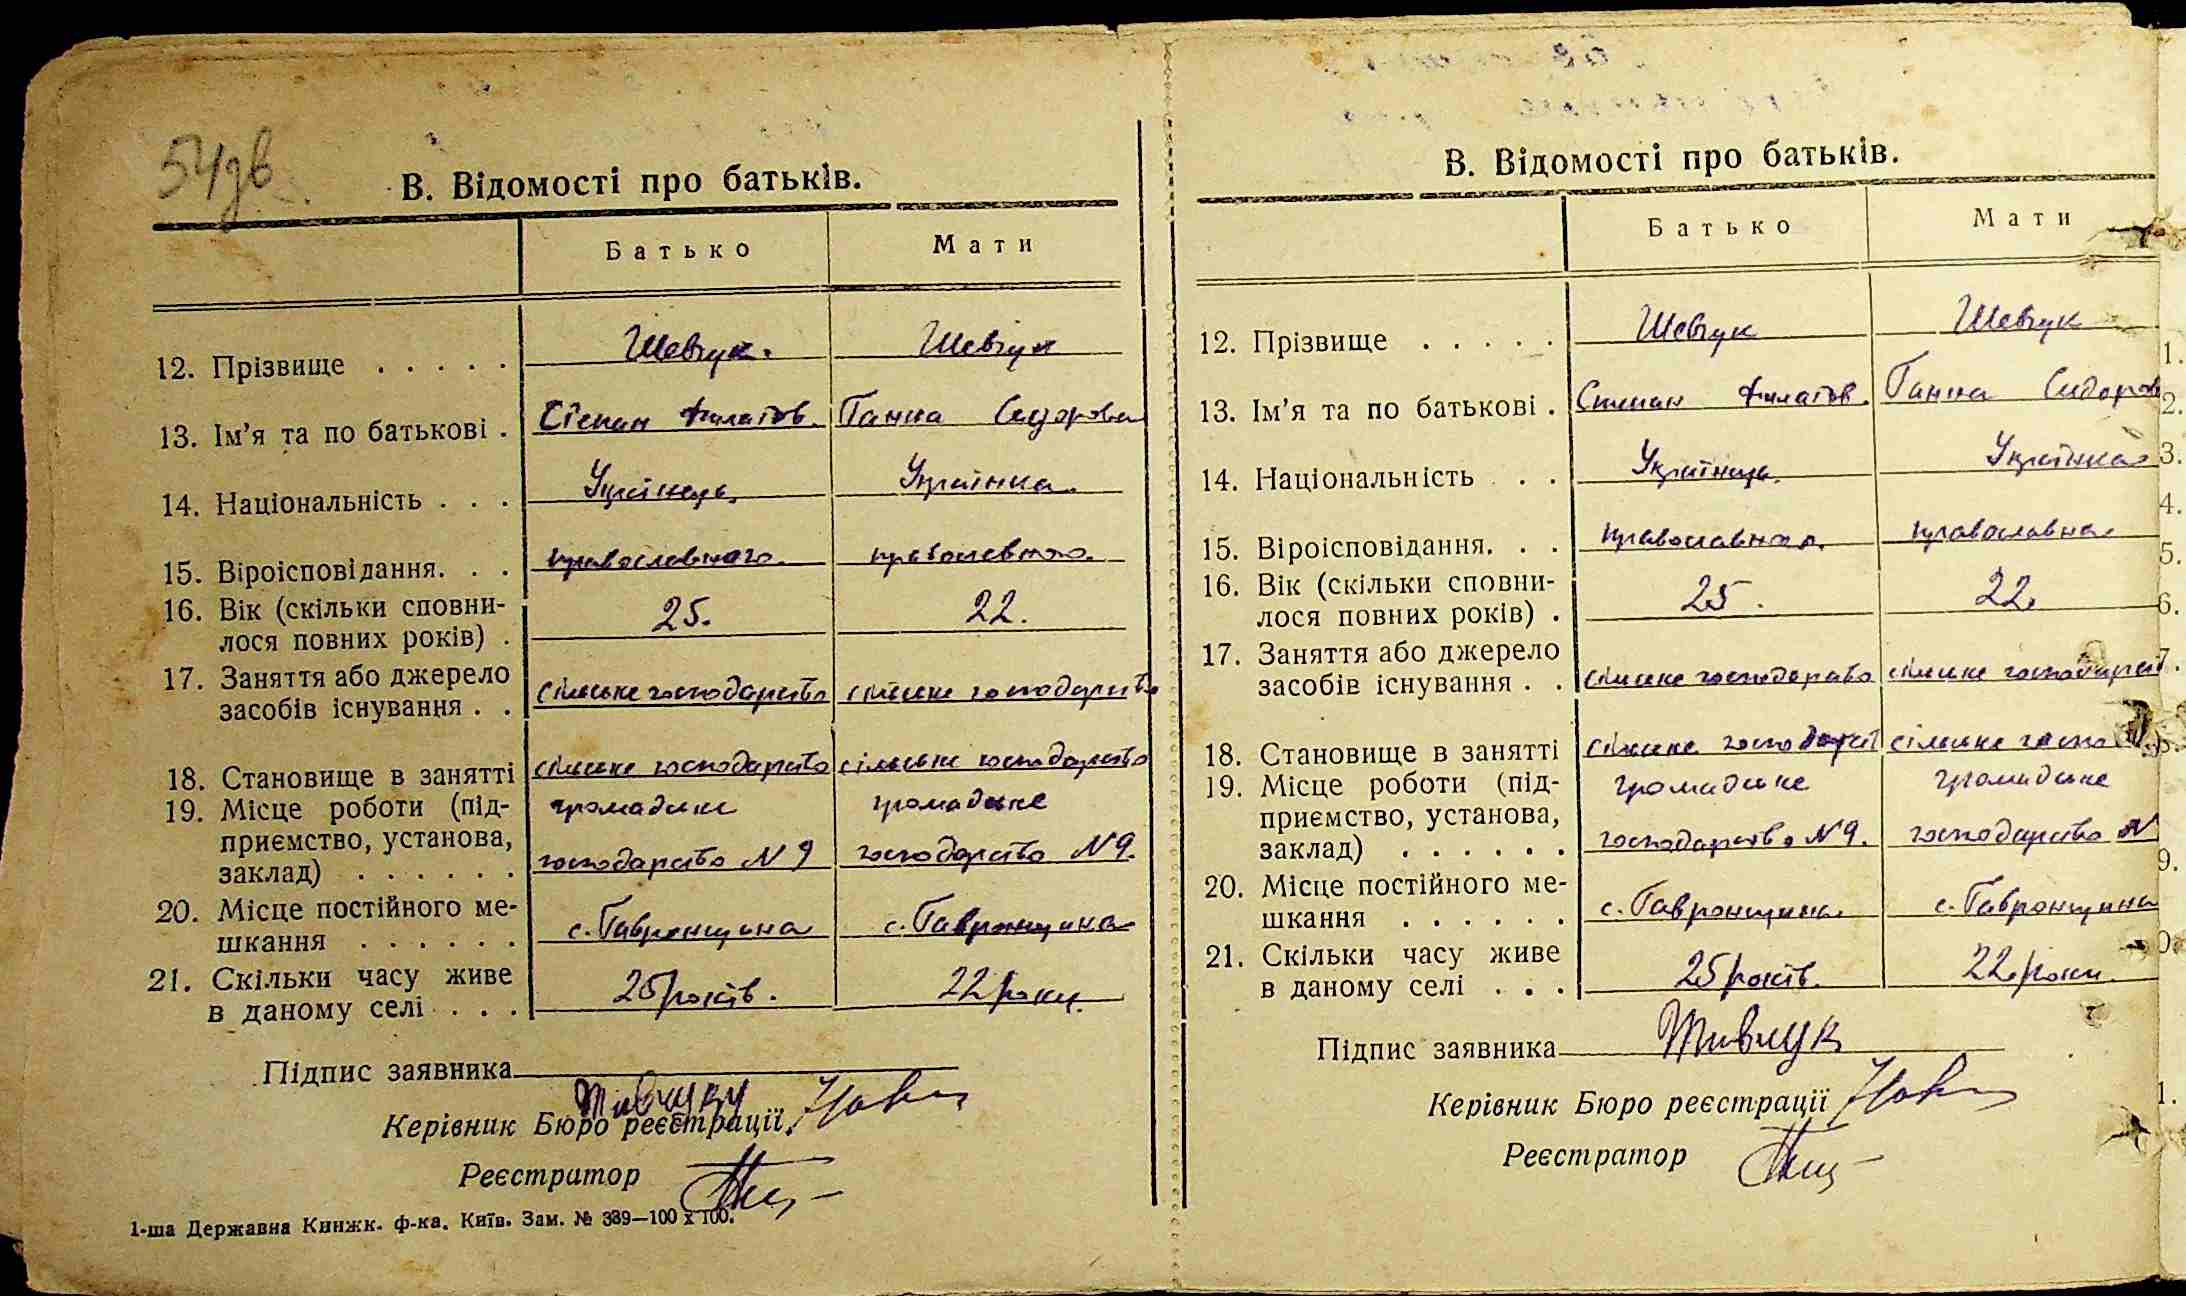 54дв
В. Відомості про батьків.
Батько Мати
12. Прізвище . . . . . Шевчук. Шевчук
13. Ім'я та по батькові . Степан Филатов. Ганна Сидорова
14. Національність . . . Українець. Українка.
15. Віроісповідання. . . православного. православного.
16. Вік (скільки сповни-
лося повних років) . 25. 22.
17. Заняття або джерело
засобів існування . . сільське господарство сільське господарство
18. Становище в занятті сільське господарство сільське господарство
19. Місце роботи (під- громадське громадське
приємство, установа,
заклад) . . . . . . господарство N 9 господарство N 9.
20. Місце постійного ме-
шкання . . . . . . с. Гавронщина с. Гавронщина
21. Скільки часу живе
в даному селі . . . 25 років. 22 роки.
Підпис заявника
Керівник Бюро реєстрації
Реєстратор
1-ша Державна Книжк. ф-ка. Київ. Зам. № 339—100 х 100.
В. Відомості про батьків.
Батько Мати
12. Прізвище . . . . . Шевчук Шевчук
13. Ім'я та по батькові . Степан Филатов. Ганна Сидоров
14. Національність . . Українець. Українка
15. Віроісповідання. . . православная. православна.
16. Вік (скільки сповни-
лося повних років) . 25. 22.
17. Заняття або джерело
засобів існування . . сільське господарство сільське господарст
18. Становище в занятті сільське господарст сільське госпо
19. Місце роботи (під- громадське громадське
приємство, установа,
заклад) . . . . . . господарство N 9. господарство N
20. Місце постійного ме-
шкання . . . . . . с. Гавронщина. с. Гавронщина
21. Скільки часу живе
в даному селі . . . 25 років. 22 роки.
Підпис заявника Шивчук
Керівник Бюро реєстрації
Реєстратор
1.
2.
3.
4.
5.
6.
7.
9.
0.
1.